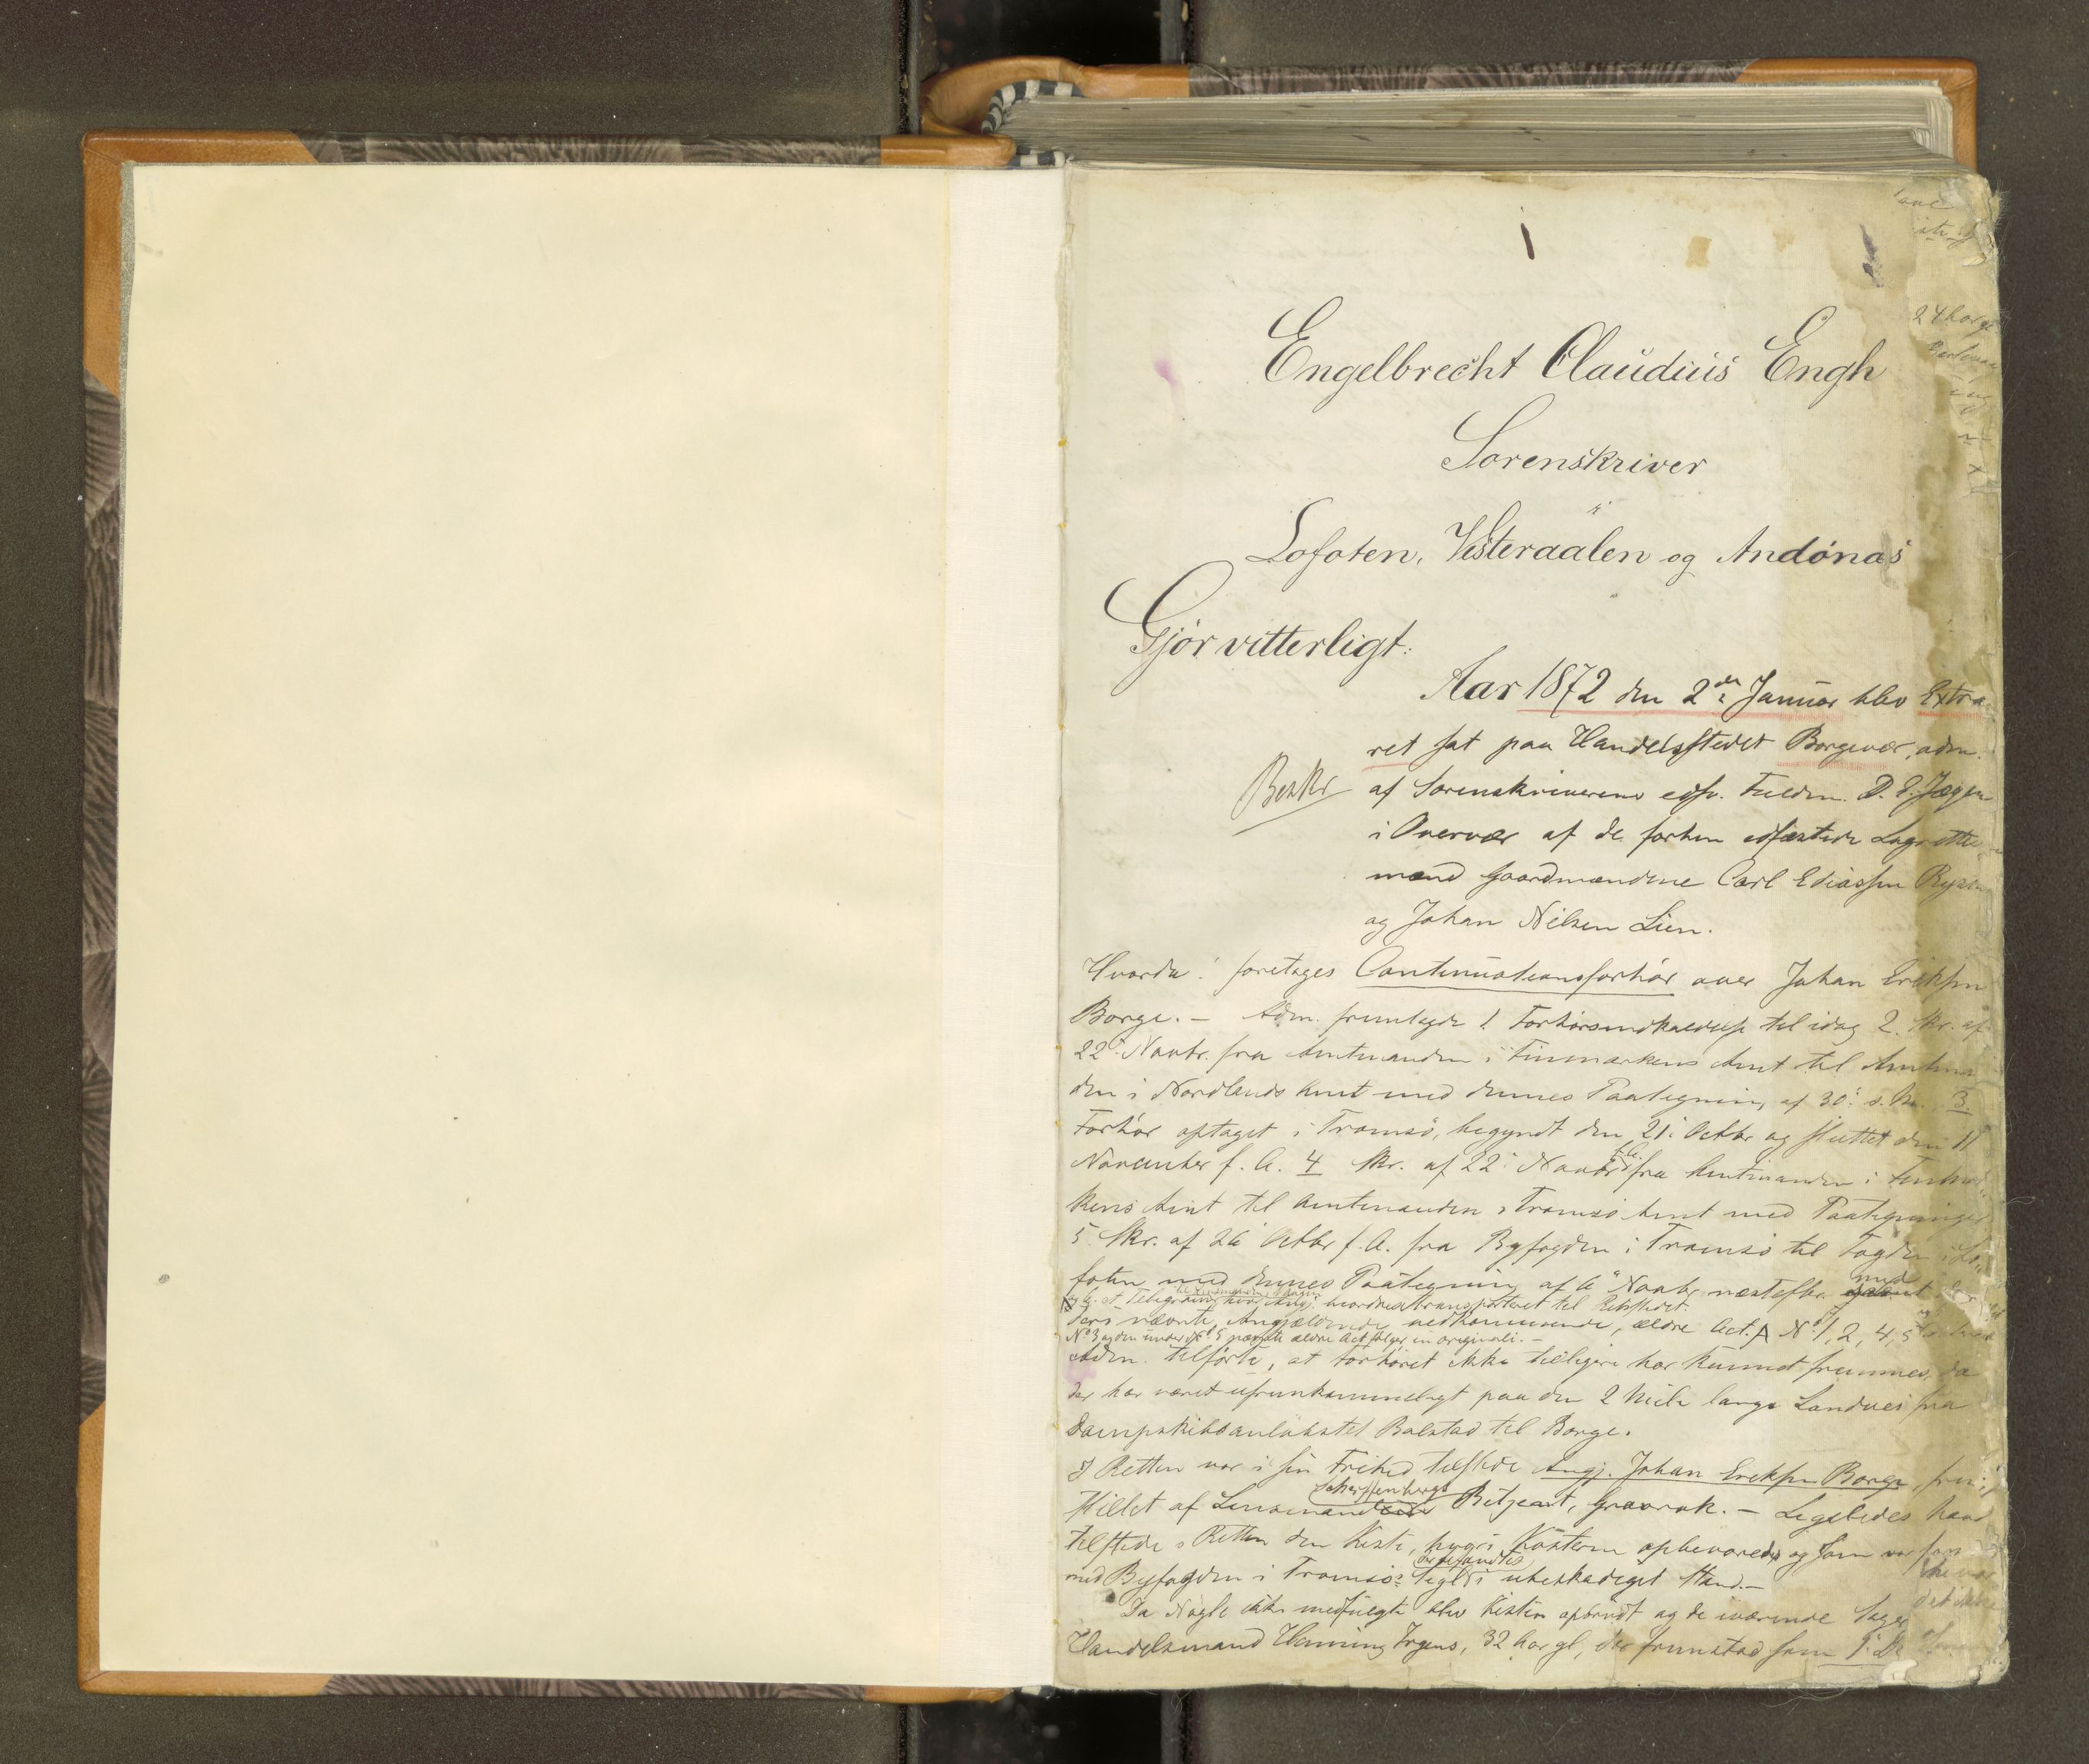 Engelbrecht Claudius Engh
Sorenskriver
i
Lofoten, Vesteraalen og Andønæs
Gjør vitterligt:
Aar 1872 den 2den Januar blev Extra
ret sat paa Handelsstedet Borgevær, adm.
Beskr af Sorenskriverens edsv. Fuldm. D. E. Jæger
i Overvær af de forhen edfæstede Lagrettes
mænd Gaardmændene Carl Eliassen
og Johan Nilsen Lien.
Hvorda: foretages Continuationsforhør over Johan Eriksen
Borge. – Adm. fremlagde 1 Forhørsindkaldelse til idag 2. Skr. af
22. Novbr. fra Amtmanden i Finmarkens Amt til Amtman
den i Nordlands Amt med dennes Paategning af 30. s. M. 3.
Forhør optaget i Tromsø, begyndt den 21. Octbr og sluttet den 11
November f. A. 4 Skr. af 22. Novbr f. A. fra Amtmanden i Finmar
kens Amt til Amtmanden i Tromsø Amt med Paategninger
5 Skr. af 26 Octbr f. A. fra Byfogden i Tromsø til Fogden i Lo
foten med dennes Paategning af 6 Novbr næstefter med
6. et Telegram transporteret til
ders nævnte Angjældende vedkommende, ældre Act. No 1, 2, 4, 5
No 3 og den under No 5 nævnte ældre Act følger in originali. –
Adm. tilførte, at Forhøret ikke tidligere har kunnet fremmes, da
der har været ufremkommeligt paa den 2 Mile lange Landvei fra
Dampskibsanløbstet Balstad til Borge.
I Retten var i sin Frihed tilstede Angj. Johan Eriksen Borge, frem
stillet af Lensmand Betjent, Gravrok. – Ligeledes havd
tilstede i Retten den Kiste, hvori Kosterne opbevaredes og som var for
med Byfogden i Tromsø's Segl i ubeskadiget Stand. –
Da Nøgle ikke medfulgte blev Kisten opbrudt og de iværende Sager
Handelsmand Henning Irgens, 32 Aar gl, der fremstod som 1. D